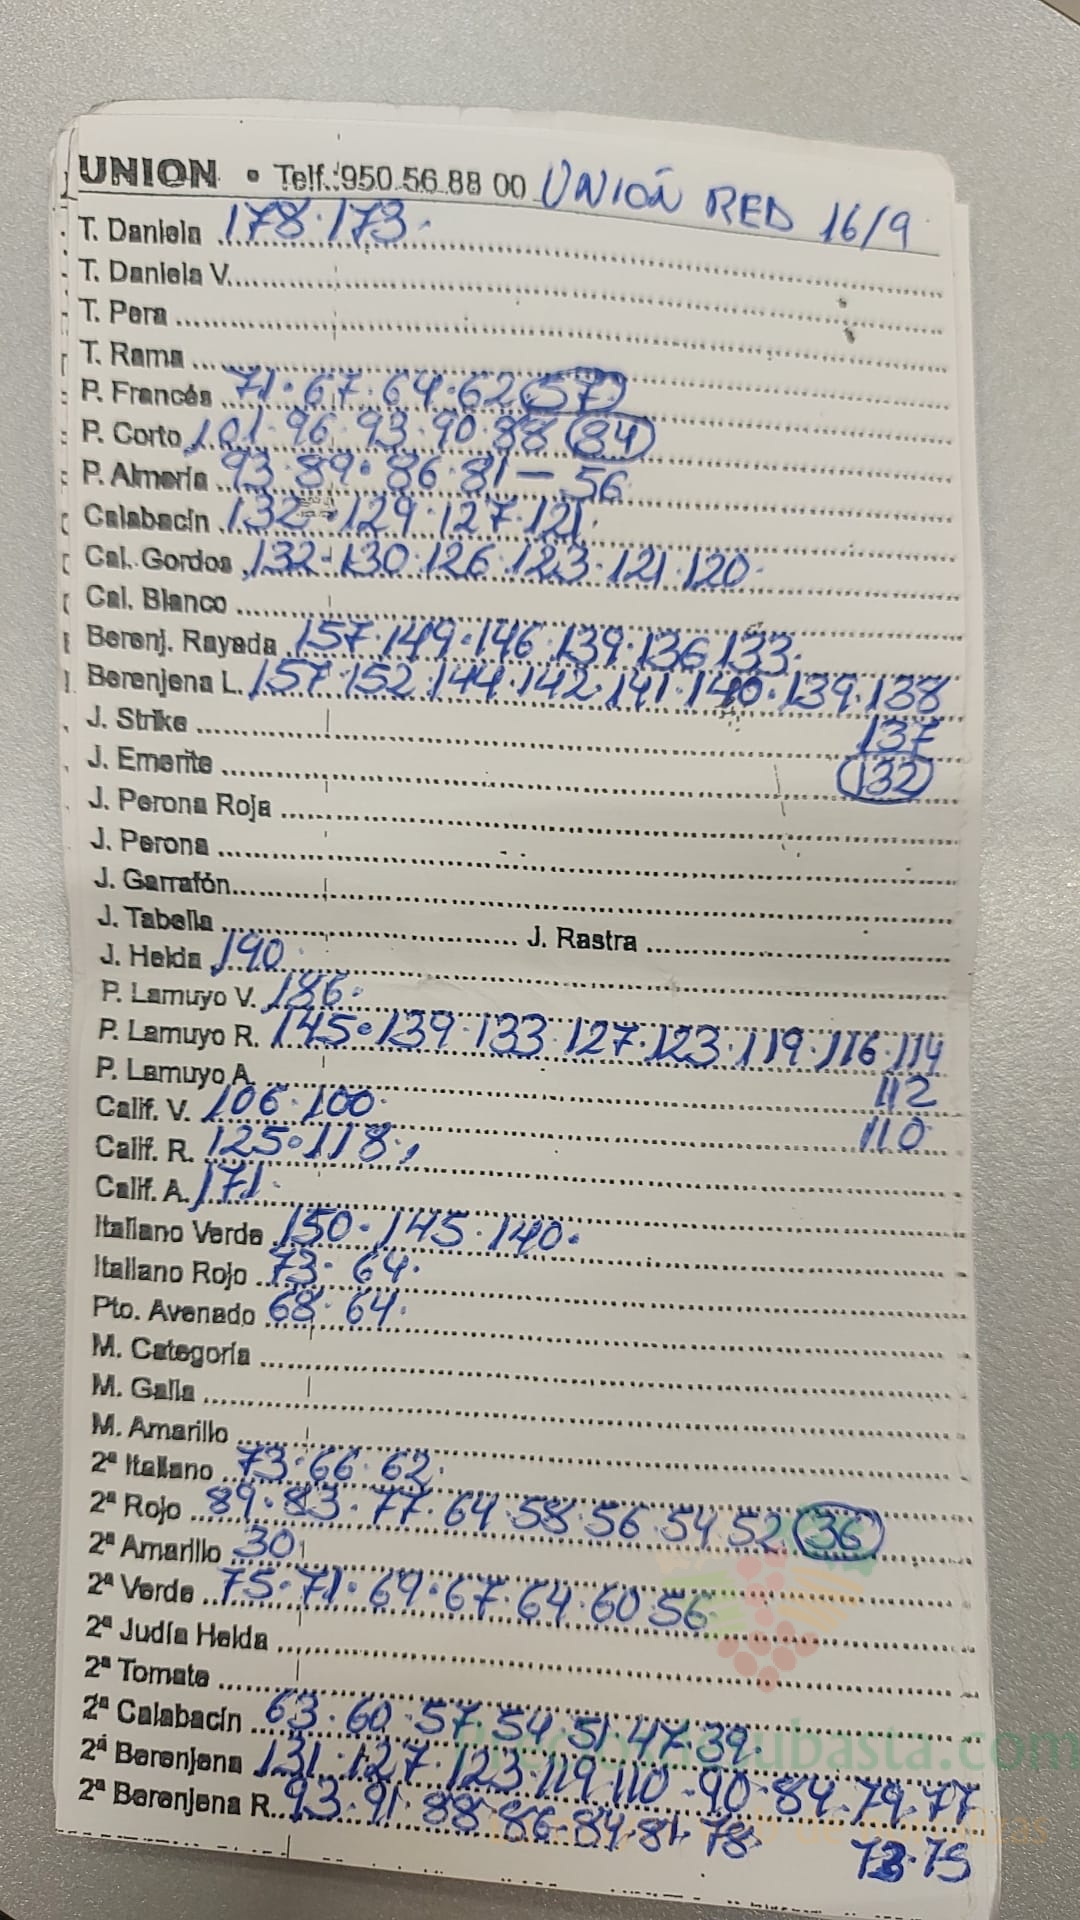 UNION • Telf.:950 56 88 00 UNIÓN RED 16/9
T. Daniela 178·173·
T. Daniela V.
T. Pera
T. Rama
P. Francés 71·67·64·62 (57)
P. Corto 101·96·93·90·88 (84)
P. Almería 93·89·86·81 — 56
Calabacín 132-129·127·121·
Cal. Gordos 132-130·126·123·121·120·
Cal. Blanco
Berenj. Rayada 157·149·146·139·136·133·
Berenjena L. 157·152·144·142·141·140·139·138
J. Strike 137
J. Emerite (132)
J. Perona Roja
J. Perona
J. Garrafón
J. Tabella J. Rastra
J. Helda 190·
P. Lamuyo V. 186·
P. Lamuyo R. 145·139·133·127·123·119·116·114
P. Lamuyo A. 112
Calif. V. 106·100· 110
Calif. R. 125·118·
Calif. A. 171·
Italiano Verde 150·145·140·
Italiano Rojo 73·64·
Pto. Avenado 68·64·
M. Categoría
M. Galia
M. Amarillo
2ª Italiano 73·66·62·
2ª Rojo 89·83·77·64·58·56·54·52 (36)
2ª Amarillo 30
2ª Verde 75·71·69·67·64·60·56
2ª Judía Helda
2ª Tomate
2ª Calabacín 63·60·57·54·51·47·39·
2ª Berenjena 131·127·123·119·110·90·84·79·77
2ª Berenjena R. 93·91·88·86·84·81·78· 75